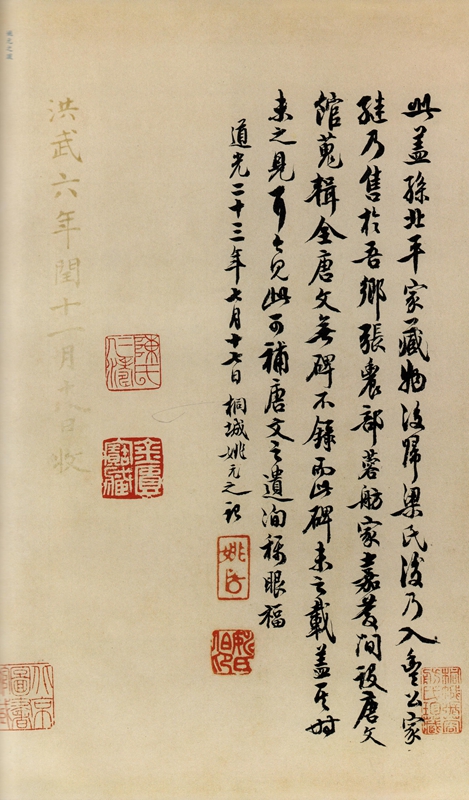 此蓋孫北平家藏物後歸梁氏後乃入公家
繼乃售於吾鄉張農部蓉舫家嘉慶間設唐文
館蒐輯全唐文無碑不錄而此碑未之載蓋其時
未之見耳今見此可補唐文之遺洵稱眼福
道光二十三年七月十七日桐城姚元之識
姚氏
陳氏仁濤
金匱寶藏
洪武六年閏十一月十八日收
北京圖書